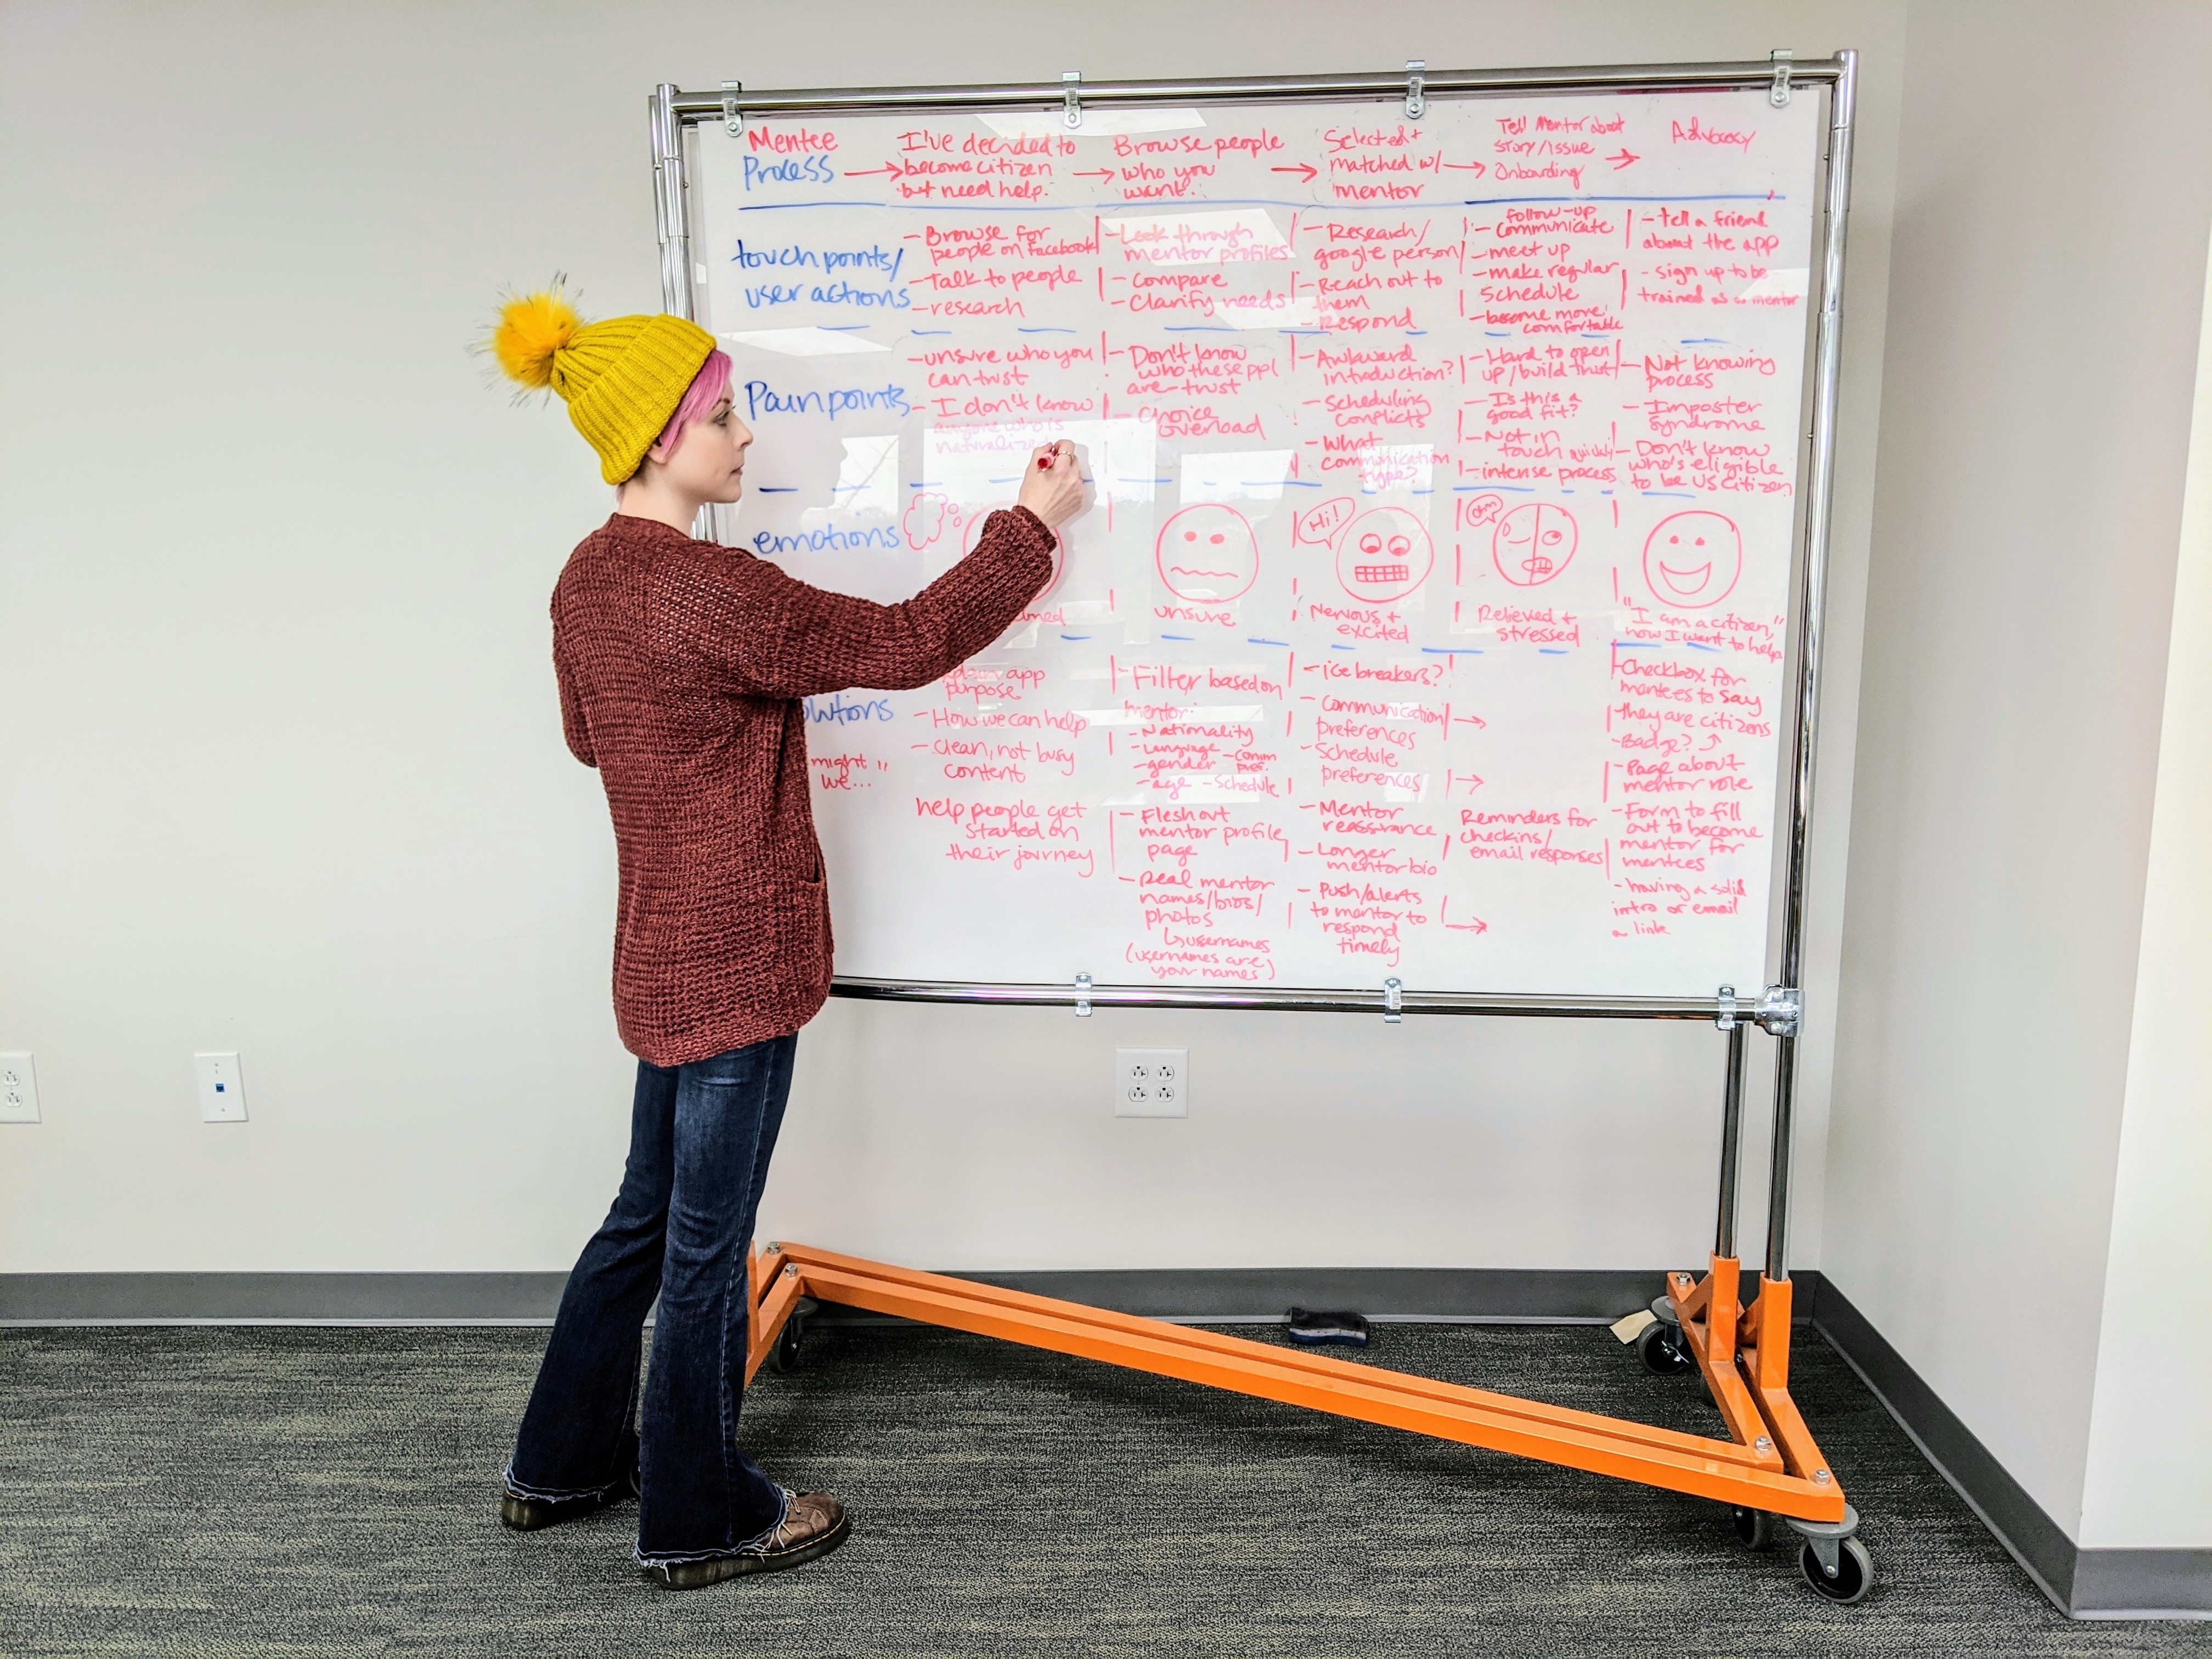 Mentee
Process
I've decided to
become citizen
but need help.
Browse people
who you
want.
Selected +
matched w/
mentor
Tell Mentor about
story/issue
Onboarding
Advocacy
touchpoints/
user actions
- Browse for
people on facebook
- Talk to people
- research
- Look through
mentor profiles
- Compare
- Clarify needs
- Research/
google person
- Reach out to
them
- Respond
follow-up
- communicate
- meet up
- make regular
schedule
- become more
comfortable
- tell a friend
about the app
- sign up to be
trained as a mentor
Painpoints
- unsure who you
can trust
- I don't know
anyone who is
naturalized
- Don't know
who these ppl
are - trust
- Choice
overload
- Awkward
introduction?
- Scheduling
conflicts
- What
communication
type?
- Hard to open
up/build trust
- Is this a
good fit?
- Not in
touch
- intense process
- Not knowing
process
- Imposter
Syndrome
- Don't know
who's eligible
to be US citizen
emotions
unsure
Hi!
Nervous +
excited
Relieved +
stressed
"I am a citizen,
now I want to help"
might
we..."
app
purpose
- How we can help
- Clean, not busy
content
help people get
started on
their journey
- Filter based on
mentor:
- Nationality
- Language
- gender - Comm
pref.
- age - Schedule
- Flesh out
mentor profile
page
- Real mentor
names/bios/
photos
↳ usernames
(usernames are
your names)
- ice breakers?
- Communication
preferences
- Schedule
preferences
- Mentor
reassurance
- Longer
mentor bio
- Push/alerts
to mentor to
respond
timely
Reminders for
checkins/
email responses
- Checkbox for
mentees to say
they are citizens
- Badge?
- Page about
mentor role
- Form to fill
out to become
mentor for
mentees
- having a solid
intro or email
a link